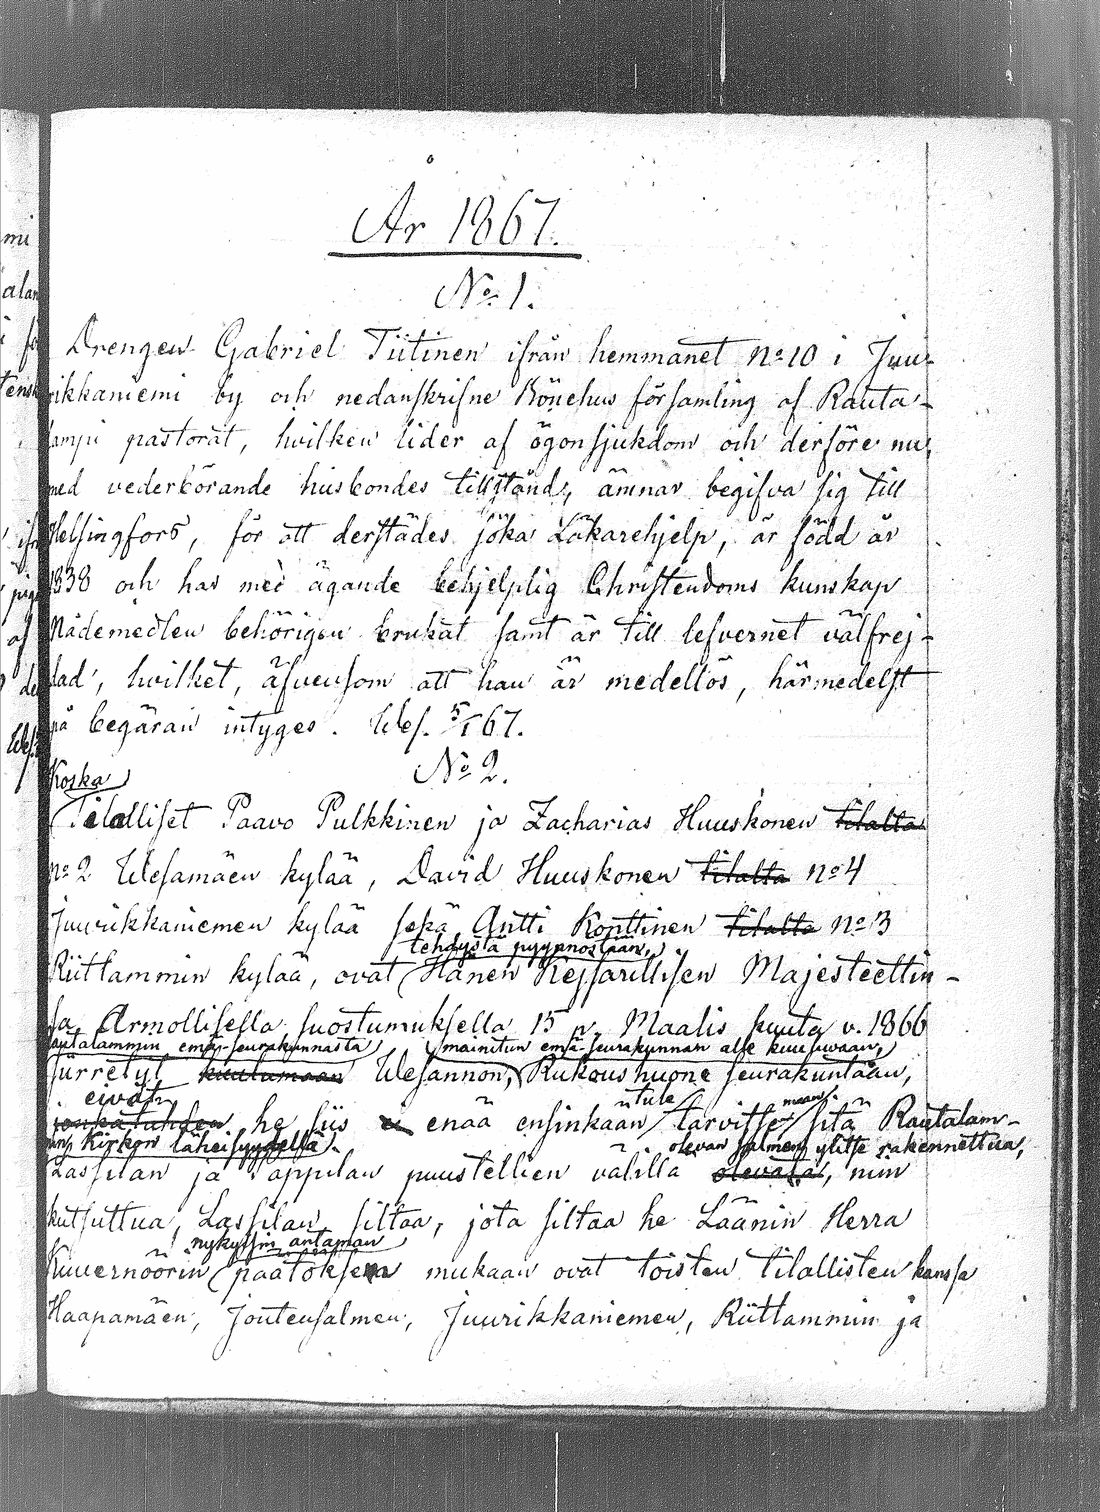 År 1867.
No 1.
Drengen Gabriel Tiitinen ifrån hemmanet No 10 i Juu-
rikkaniemi by och nedanskrifne Bönehus församling af Rauta-
lampi pastorat, hvilken lider af ögonsjukdom och derföre nu,
med vederbörande husbondes tillstånd, ämnar begifva sig till
Helsingfors, för att derstädes söka Läkarehjelp, är född år
1838 och har med ägande behjelplig Christendoms kunskap
Nådemedlen behörigen brukat samt är till lefvernet välfrej-
dad, hvilket, äfvensom att han är medellös, härmedelst
på begäran intyges. Wes. 5/1 67.
No 2.
Koska
Tilalliset Paavo Pulkkinen ja Zacharias Huuskonen tilalta
no 2 Wesamäen kylää, David Huuskonen tilalta no 4
Juurikkaniemen kylää sekä Antti Konttinen tilalta no 3
tehdystä pyynnöstään,
Riittammin kylää, ovat Hänen Kejsarillisen Majesteettin-
sa Armollisella suostumuksella 15 p. Maalis kuuta v. 1866
Rautalammin emä-seurakunnasta mainitun emä-seurakunnan alle kuuluvaan,
siirretyt kuulumaan Wesannon, Rukoushuone seurakuntaan,
eivät
jonka tähden he siis ei enää ensinkään tule tarvitse maan sitä Rautalam-
min Kirkon läheisyydellä olevan salmen ylitse rakennettua,
Lassilan ja Pappilan puustellien välillä olevata, niin
kutsuttua, Lassilan siltaa, jota siltaa he Läänin Herra
nykysin antaman
Kuvernöörin päätöksen mukaan ovat toisten tilallisten kanssa
Haapamäen, Joutensalmen, Juurikkaniemen, Riittammin ja